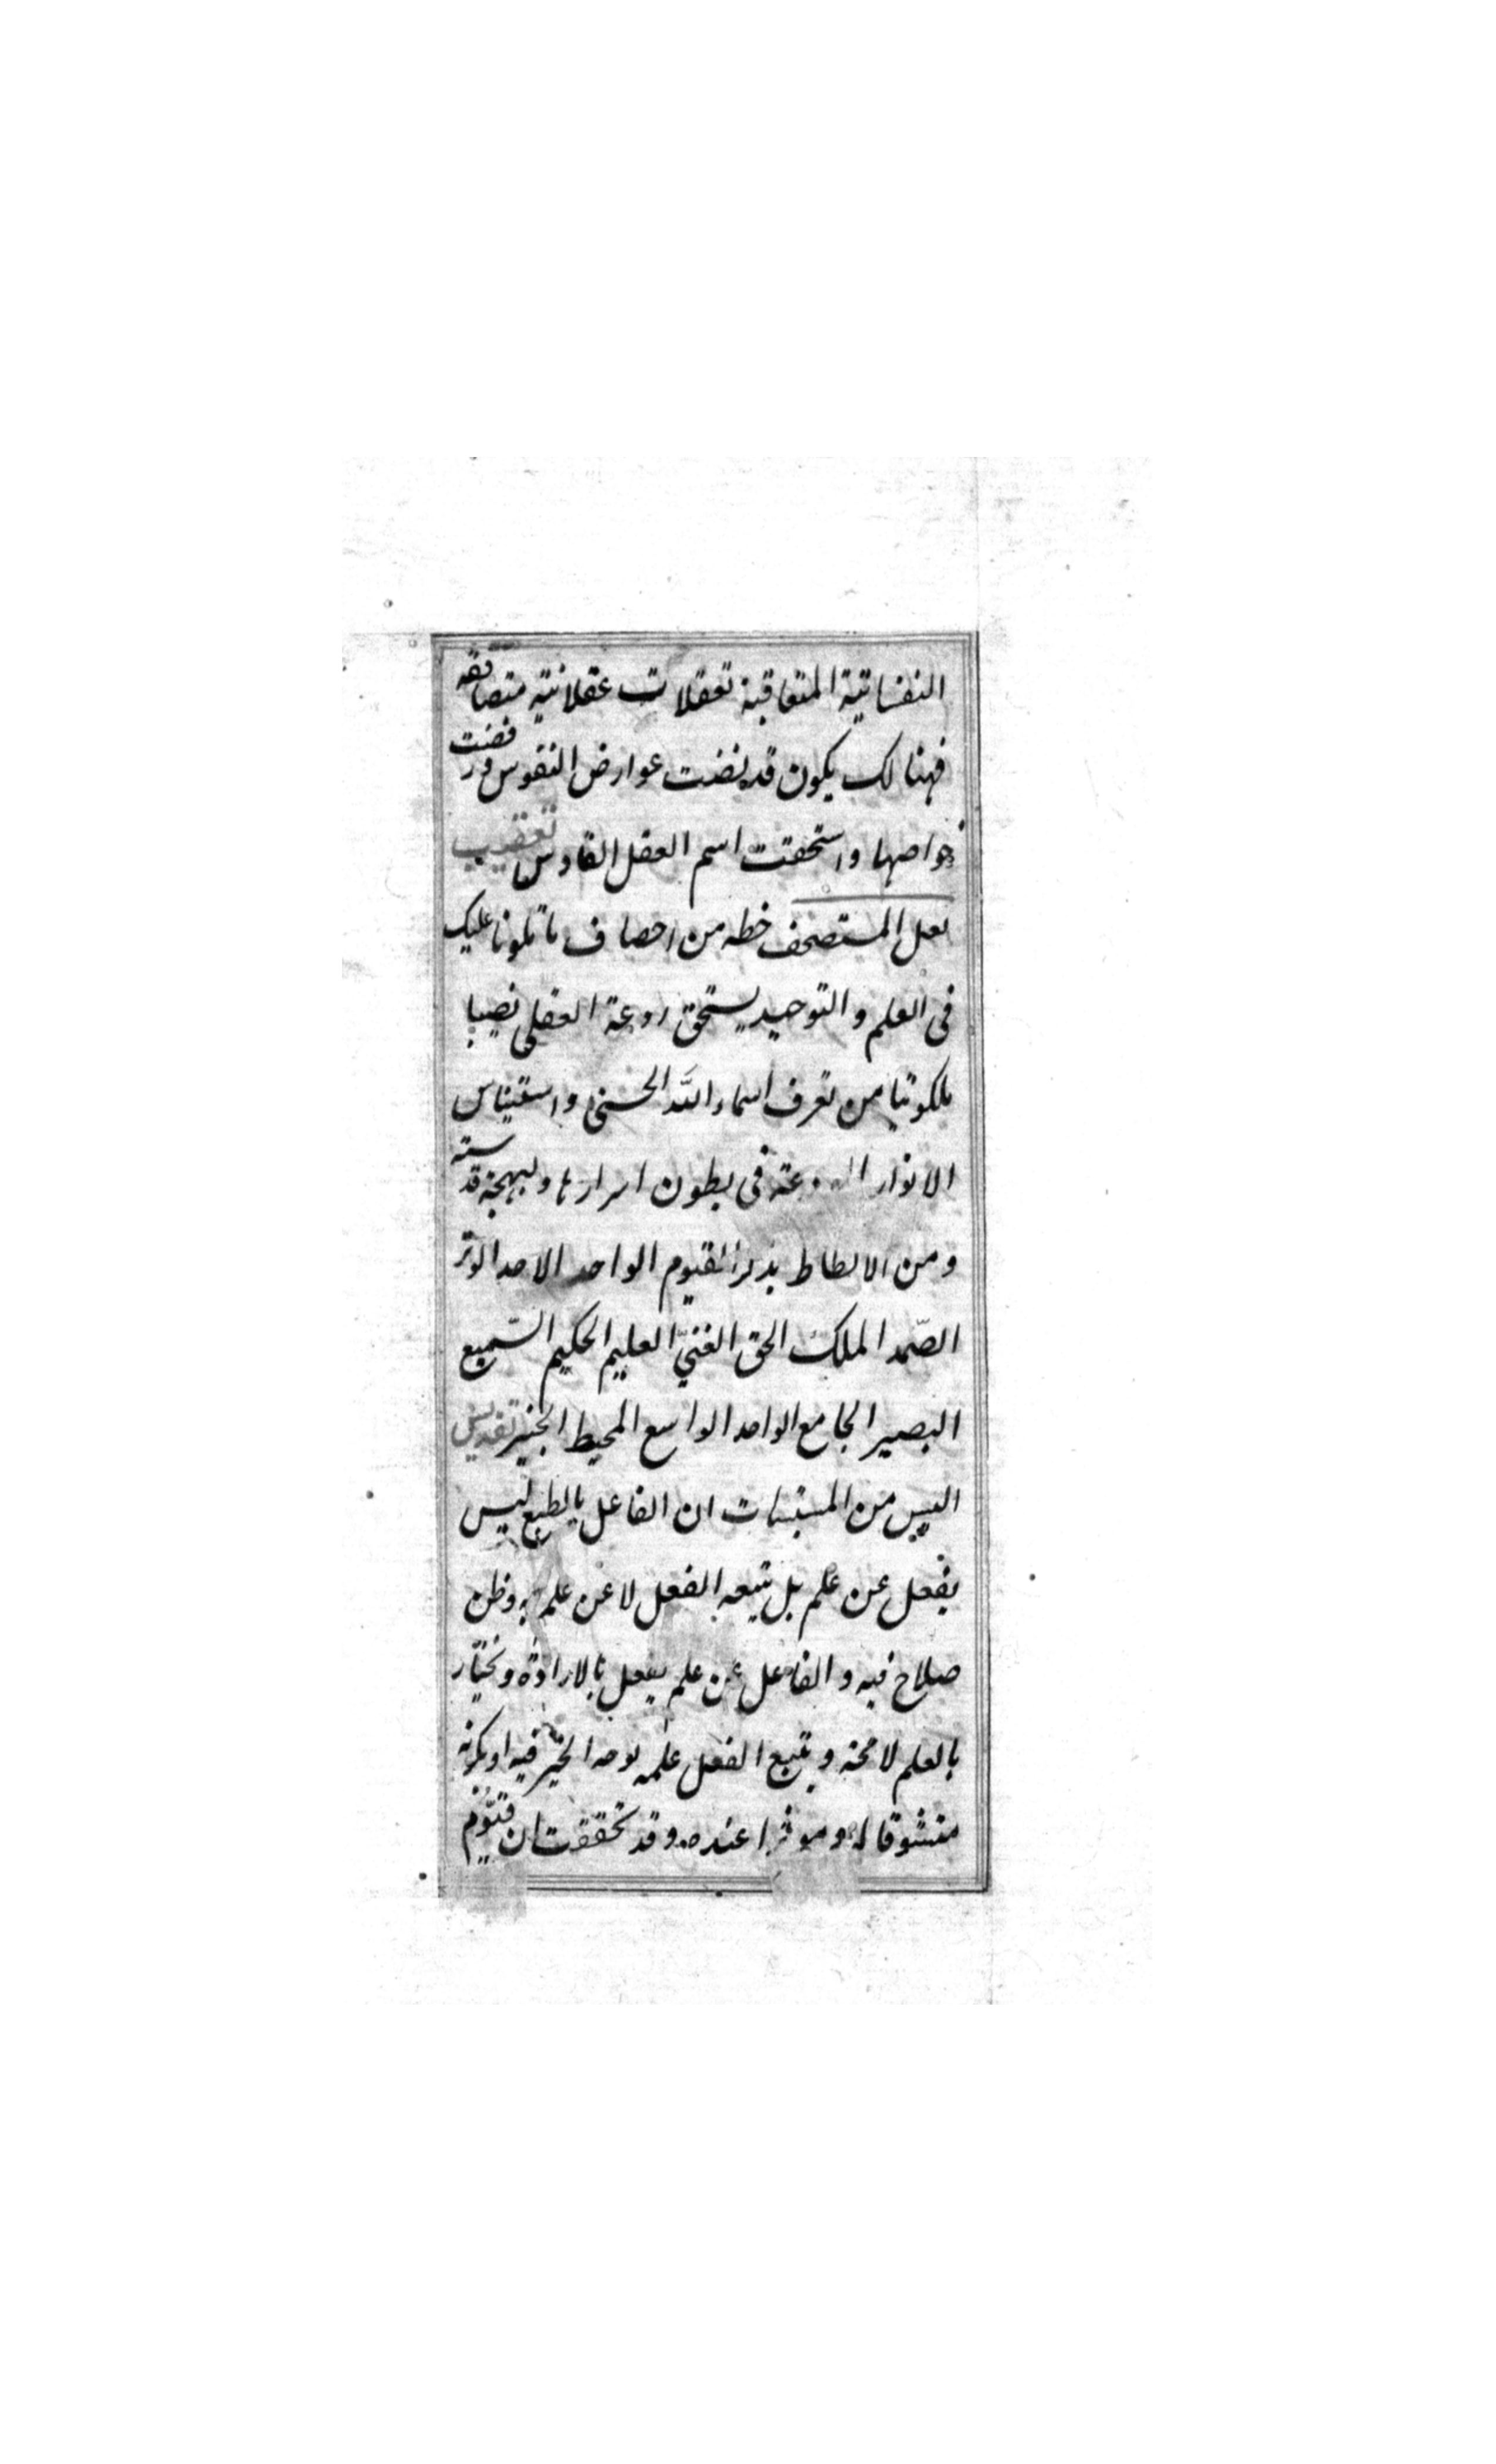 النفسانية المتعاقبة تعقلات عقلانية متصافقه
فهنالك يكون قد نضت عوارض النفوس ورفضت
خواصها واستحقت اسم العقل القادس تعقيب
لعل المستصحف خطه من احصاف ما تلونا عليك
فى العلم والتوحيد يستحق روعة العقلى نصيبا
ملكوتيا من تعرف اسماء الله الحسنى واستيناس
الانوار فى بطون اسرارها وببهجة قدسية
ومن الالطاط بذكر القيوم الواحد الاحد الوتر
الصّمد الملك الحق الغنيّ العليم الحكيم السّميع
البصير الجامع الواحد الواسع المحيط الخبير تقديس
اليس من المستبينات ان الفاعل بالطبع ليس
يفعل عن علم بل يتبعه الفعل لا عن علم به وظن
صلاح فيه والفاعل عن علم يفعل بالارادة ونختار
بالعلم لا محة ويتبع الفعل علمه بوجه الخير فيه او بكونه
متشوقا له وموثرا عنده وقد تحققت ان قيّوم